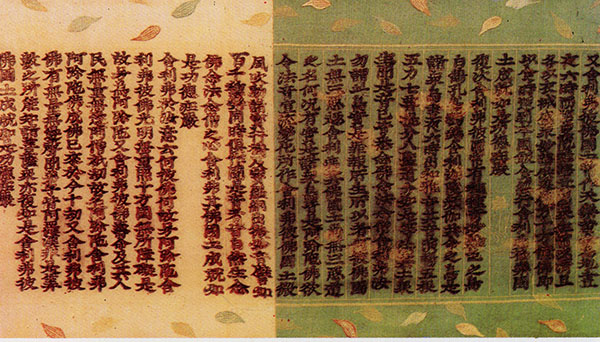 又舍利弗彼佛國土常作天樂黃金為地晝
夜六時雨天曼陀羅華其土眾生常以清旦
各以衣裓盛眾妙華供養他方十萬億佛即
以食時還到本國飯食經行舍利弗極樂國
土成就如是功德莊嚴
復次舍利弗彼國常有種種奇妙雜色之鳥
白鵠孔雀鸚鵡舍利迦陵頻伽共命之鳥是
諸眾鳥晝夜六時出和雅音其音演暢五根
五力七菩提分八聖道分如是等法其土眾
生聞是音已皆悉念佛念法念僧舍利弗汝
勿謂此鳥實是罪報所生所以者何彼佛國
土無三惡趣舍利弗其佛國土尚無三惡道
之名何況有實是諸眾鳥皆是阿弥陀佛欲
令法音宣流變化所作舍利弗彼佛國土微
風吹動諸寶行樹及寶羅網出微妙音譬如
百千種樂同時俱作聞是音者皆自然生念
佛念法念僧之心舍利弗其佛國土成就如
是功德莊嚴
舍利弗於汝意云何彼佛何故号阿弥陀舍
利弗彼佛光明無量照十方國無所障礙是
故号為阿弥陀又舍利弗彼佛壽命及其人
民無量無邊阿僧祇劫故名阿弥陀舍利弗
阿弥陀佛成佛已來於今十劫又舍利弗彼
佛有無量無邊聲聞弟子皆阿羅漢非是筭
數之所能知諸菩薩眾亦復如是舍利弗彼
佛國土成就如是功德莊嚴